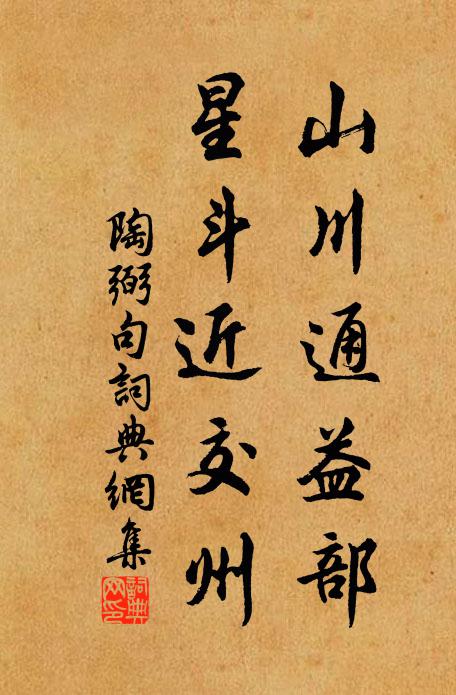 山川通益部
星斗近交州
陶弼句詞典網集
詞典網印